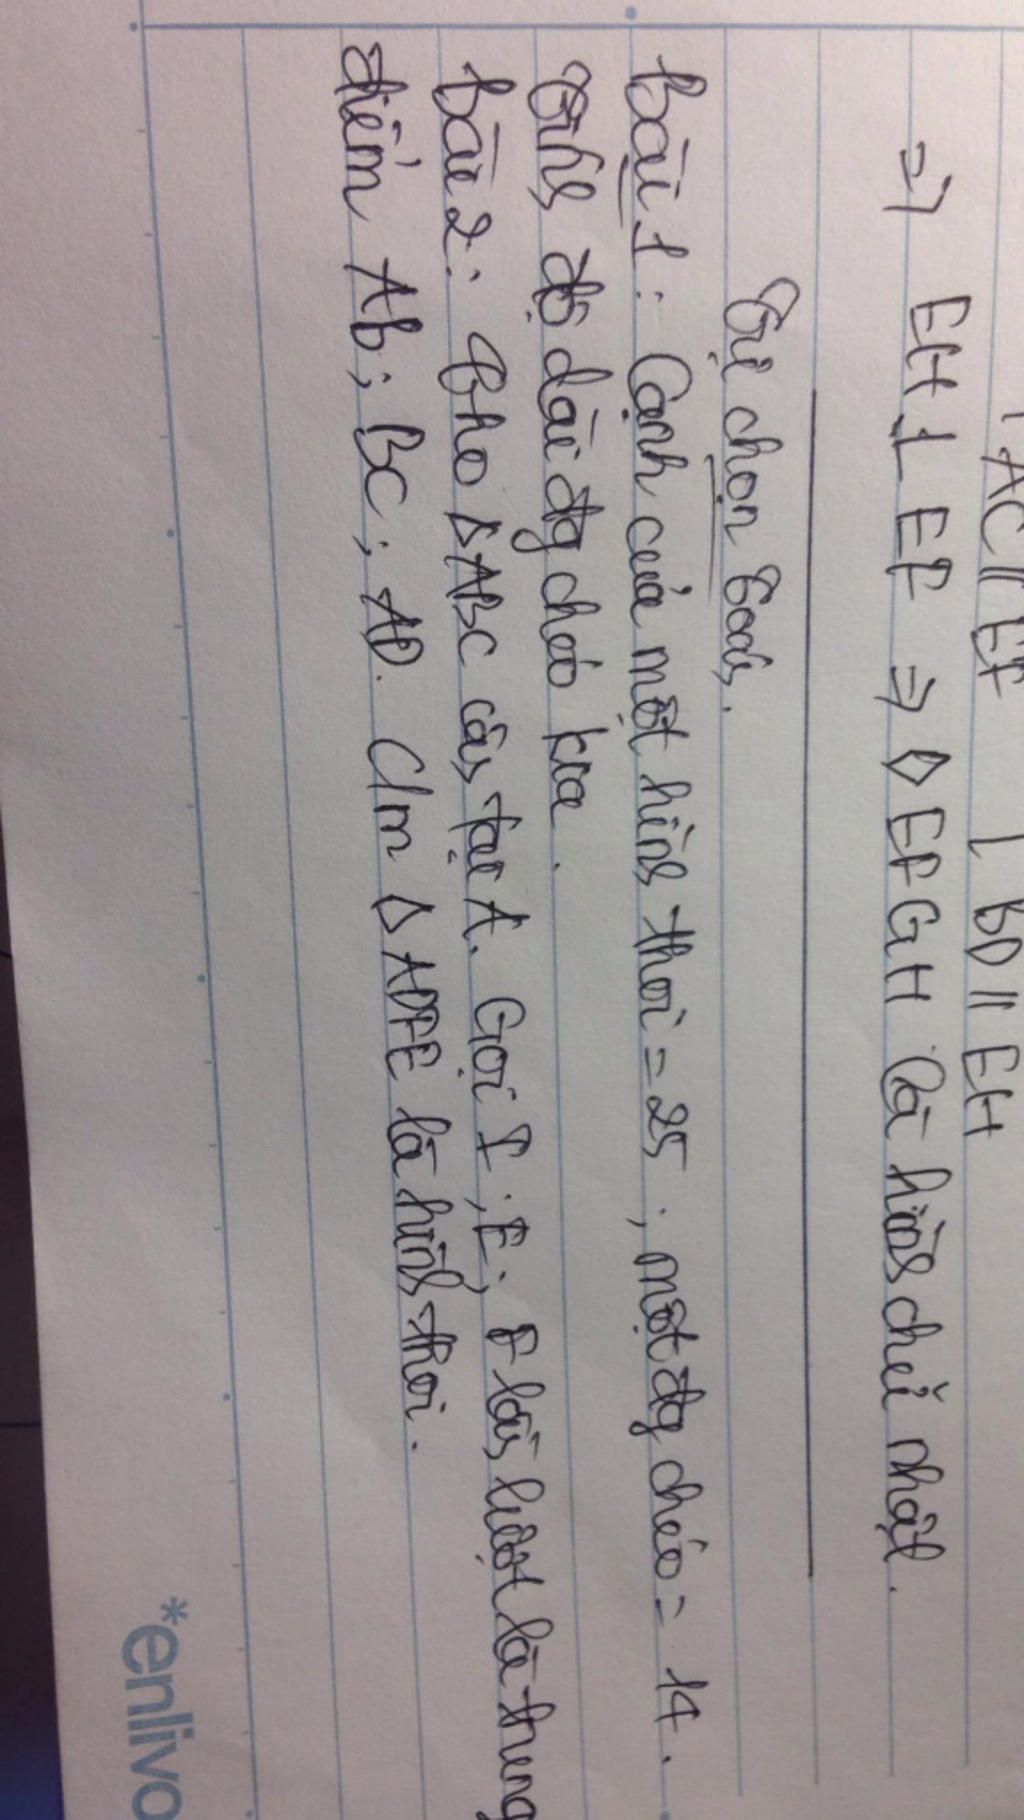 AC // EF    BD // EH
=> EH ⊥ EF => ◇ EFGH là hình chữ nhật.
Tự chọn toán.
Bài 1: Cạnh của một hình thoi = 25 ; một đg chéo = 14.
Tính độ dài đg chéo kia.
Bài 2: Cho ΔABC cân tại A. Gọi D; E; F lần lượt là trung
điểm AB; BC; AD. C/m ◇ ADFE là hình thoi.
*enlivo